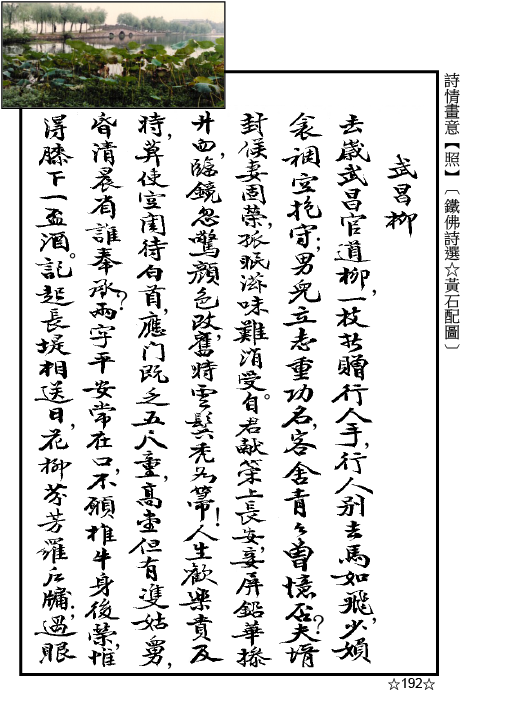 詩情畫意【照】〔鐵佛詩選☆黃石配圖〕
武昌柳
去歲武昌官道柳，一枝折贈行人手，行人別去馬如飛，少婦
衾裯空抱守；男兒立志重功名，客舍青々曾憶否？夫壻
封侯妻固榮，孤眠滋味難消受。自君献策上長安，妾屏鉛華摻
井臼，臨鏡忽驚顏色改，舊時雲鬓禿為箒！人生歡樂貴及
時，莫使空閨待白首，應门既乏五尺童，高堂但有雙姑舅，
昏清晨省誰奉承？兩字平安常在口，不願椎牛身後榮，惟
淂膝下一盃酒。記起長堤相送日，花柳芬芳羅戶牗；過眼
☆192☆